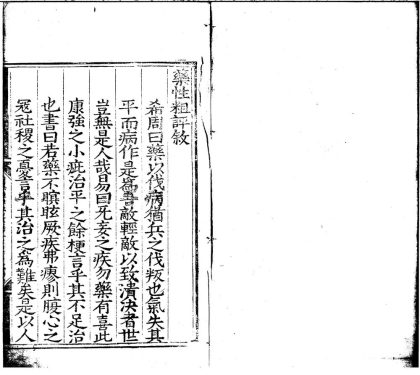 藥性粗評敘
希周曰藥以伐病猶兵之伐叛也氣失其
平而病作是為害敵輕敵以致潰決者世
豈無是人哉易曰无妄之疾勿藥有喜此
康強之小疵治平之餘梗言乎其不足治
也書曰若藥不瞑眩厥疾弗瘳則腹心之
冦社稷之憂言乎其治之為難矣是以人